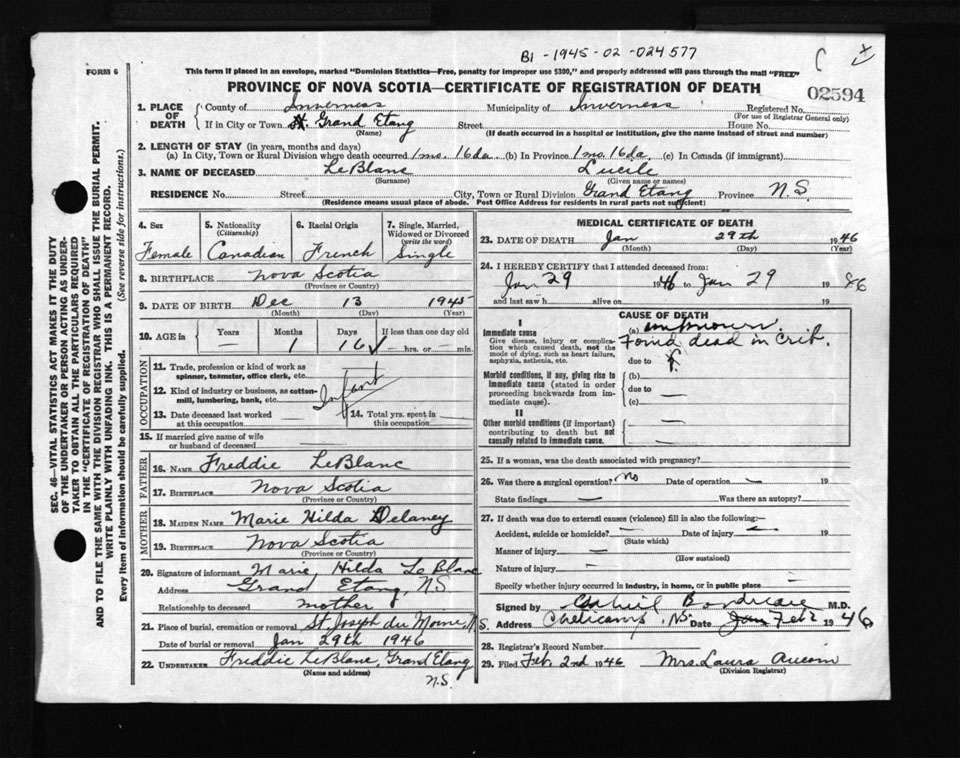 B1 - 1945 - 02 - 024577
FORM 6
This form if placed in an envelope, marked "Dominion Statistics—Free, penalty for improper use $300," and properly addressed will pass through the mail "FREE"
PROVINCE OF NOVA SCOTIA—CERTIFICATE OF REGISTRATION OF DEATH
02594
1. PLACE OF DEATH County of Inverness Municipality of Inverness Registered No.
(For use of Registrar General only)
If in City or Town Grand Etang Street House No.
(Name) (If death occurred in a hospital or institution, give the name instead of street and number)
2. LENGTH OF STAY (in years, months and days)
(a) In City, Town or Rural Division where death occurred 1 mo. 16 da. (b) In Province 1 mo. 16 da. (c) In Canada (if immigrant)
3. NAME OF DECEASED LeBlanc Lucile
(Surname) (Given name or names)
RESIDENCE No. Street City, Town or Rural Division Grand Etang Province N.S
(Residence means usual place of abode. Post Office Address for residents in rural parts not sufficient)
4. Sex 5. Nationality (Citizenship) 6. Racial Origin 7. Single, Married, Widowed or Divorced (write the word)
Female Canadian French Single
8. BIRTHPLACE Nova Scotia
(Province or Country)
9. DATE OF BIRTH Dec 13 1945
(Month) (Day) (Year)
10. AGE in Years Months Days If less than one day old
— 1 16 — hrs. or — min.
OCCUPATION
11. Trade, profession or kind of work as spinner, teamster, office clerk, etc.
12. Kind of industry or business, as cotton-mill, lumbering, bank, etc.
Infant
13. Date deceased last worked at this occupation 14. Total yrs. spent in this occupation
15. If married give name of wife or husband of deceased
FATHER
16. NAME Freddie LeBlanc
17. BIRTHPLACE Nova Scotia
(Province or Country)
MOTHER
18. MAIDEN NAME Marie Hilda Delaney
19. BIRTHPLACE Nova Scotia
(Province or Country)
20. Signature of informant Marie Hilda LeBlanc
Address Grand Etang, N.S
Relationship to deceased mother
21. Place of burial, cremation or removal St. Joseph du Moine, N.S.
Date of burial or removal Jan 29th 1946
22. UNDERTAKER Freddie LeBlanc, Grand Etang
(Name and address)
N.S.
MEDICAL CERTIFICATE OF DEATH
23. DATE OF DEATH Jan 29th 1946
(Month) (Day) (Year)
24. I HEREBY CERTIFY that I attended deceased from:
Jan 29 1946 to Jan 29 19
and last saw h alive on 19
CAUSE OF DEATH
I
Immediate cause (a) unknown.
Give disease, injury or complication which caused death, not the mode of dying, such as heart failure, asphyxia, asthenia, etc.
Found dead in crib.
due to
Morbid conditions, if any, giving rise to immediate cause (stated in order proceeding backwards from immediate cause).
(b) —
due to —
(c) —
II
Other morbid conditions (if important) contributing to death but not causally related to immediate cause.
25. If a woman, was the death associated with pregnancy?
26. Was there a surgical operation? No Date of operation — 19
State findings — Was there an autopsy?
27. If death was due to external causes (violence) fill in also the following:—
Accident, suicide or homicide? — Date of injury — 19
(State which)
Manner of injury —
(How sustained)
Nature of injury —
Specify whether injury occurred in industry, in home, or in public place —
Signed by Gabriel Boudreau M.D.
Address Cheticamp, N.S. Date Jan Feb 2 1946
28. Registrar's Record Number
29. Filed Feb. 2nd 1946 Mrs. Laura Aucoin
(Division Registrar)
SEC. 46—VITAL STATISTICS ACT MAKES IT THE DUTY
OF THE UNDERTAKER OR PERSON ACTING AS UNDER-
TAKER TO OBTAIN ALL THE PARTICULARS REQUIRED
IN THE "CERTIFICATE OF REGISTRATION OF DEATH"
AND TO FILE THE SAME WITH THE DIVISION REGISTRAR WHO SHALL ISSUE THE BURIAL PERMIT.
WRITE PLAINLY WITH UNFADING INK. THIS IS A PERMANENT RECORD.
Every item of information should be carefully supplied. (See reverse side for instructions.)